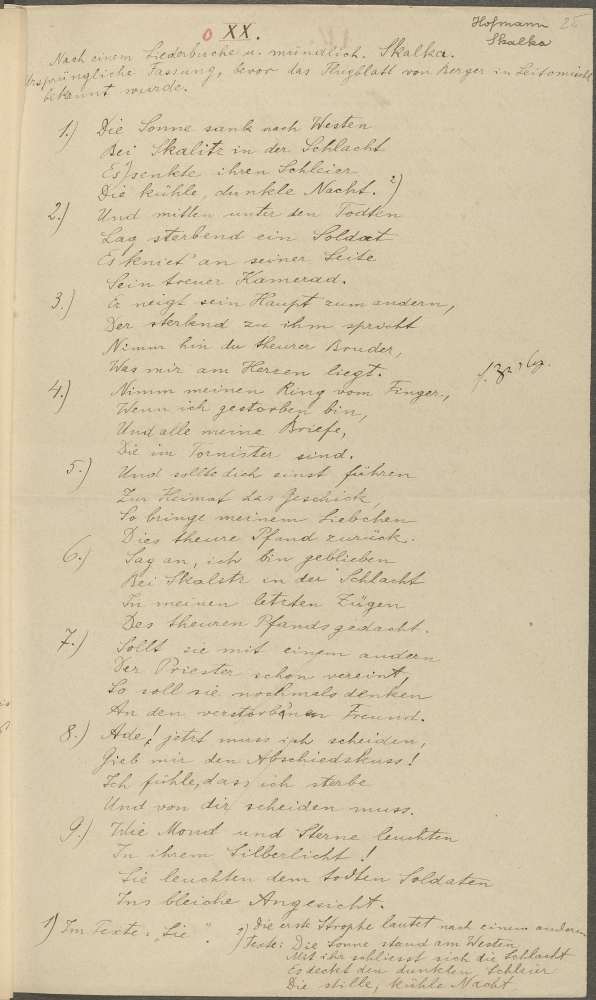 o XX.
Hofmann 25
Skalka
Nach einem Liederbuche u. mündlich. Skalka.
Ursprüngliche Fassung, bevor das Flugblatt von Berger in Leitomischl
bekannt wurde.
1.) Die Sonne sank nach Westen
Bei Skalitz in der Schlacht
Es 1) senkte ihren Schleier
Die kühle, dunkle Nacht. 2)
2.) Und mitten unter den Todten
Lag sterbend ein Soldat
Es kniet' an seiner Seite
Sein treuer Kamerad.
3.) Er neigt sein Haupt zum andern,
Der sterbend zu ihm spricht
Nimm hin du theurer Bruder,
Was mir am Herzen liegt.
4.) Nimm meinen Ring vom Finger,
Wenn ich gestorben bin,
Und alle meine Briefe,
Die im Tornister sind.
5.) Und sollte dich einst führen
Zur Heimat das Geschick,
So bringe meinem Liebchen
Dies theure Pfand zurück.
6.) Sag an, ich bin geblieben
Bei Skalitz in der Schlacht
In meinen letzten Zügen
Des theuren Pfands gedacht.
7.) Sollt sie mit einem andern
Der Priester schon vereint,
So soll sie nochmals denken
An den verstorbenen Freund.
8.) Ade! jetzt muss ich scheiden,
Gieb mir den Abschiedskuss!
Ich fühle, dass ich sterbe
Und von dir scheiden muss.
9.) Wie Mond und Sterne leuchten
In ihrem Silberlicht!
Sie leuchten dem todten Soldaten
Ins bleiche Angesicht.
1) Im Texte: „Sie".
2) Die erste Strophe lautet nach einem anderen
Texte: Die Sonne stand am Westen,
Mit ihr schliesst sich die Schlacht
Es deckt den dunklen Schleier
Die stille, kühle Nacht